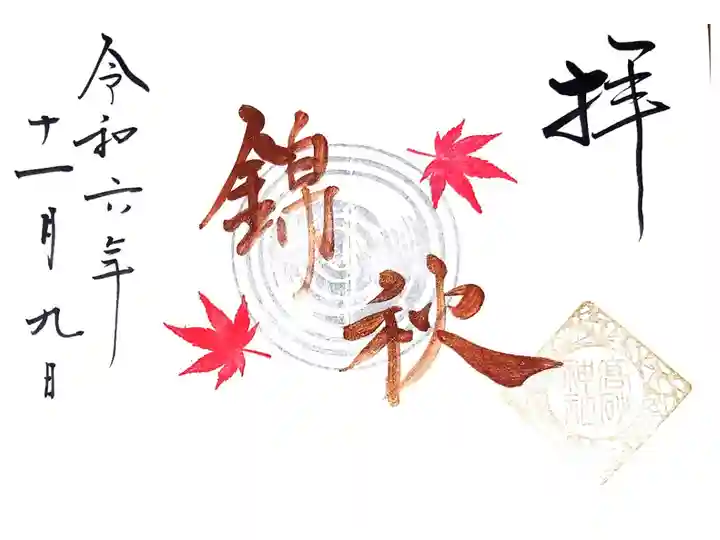 拝
錦秋
高砂
神社
令和六年
十一月九日